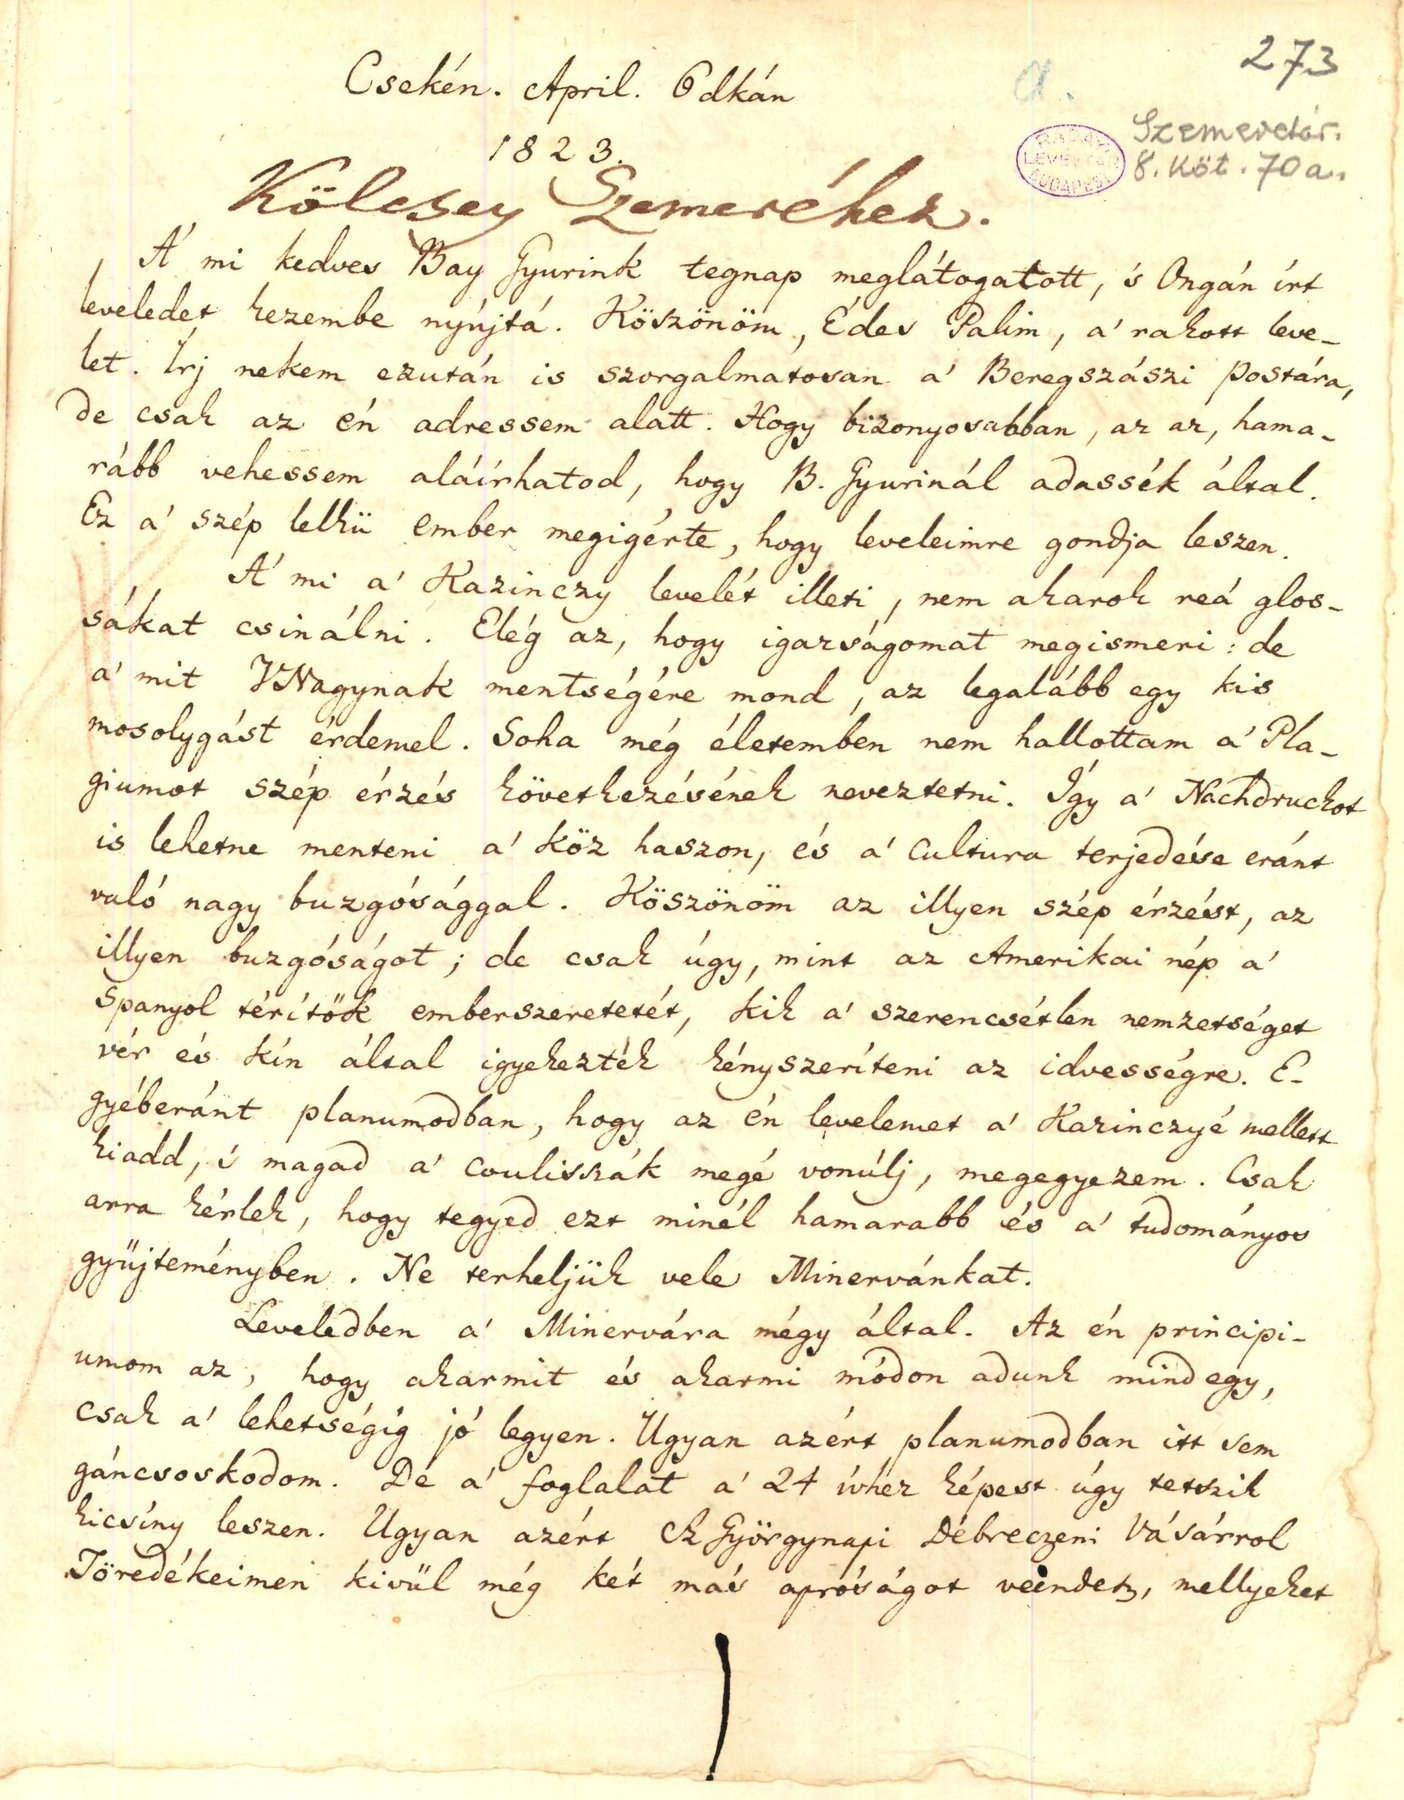 273
a.
Csekén. April. 6dkán
1823.
Szemeretár.
8. Köt. 70a.
RÁDAY
LEVÉLTÁR
BUDAPEST
Kölcsey Szemeréhez.
A' mi kedves Bay Gyurink tegnap meglátogatott, 's Ongán írt
leveledet kezembe nyújtá. Köszönöm, Édes Palim, a' rakott leve-
let. Írj nekem ezután is szorgalmatosan a' Beregszászi postára,
de csak az én adressem alatt. Hogy bizonyosabban, az az, hama-
rább vehessem aláírhatod, hogy B. Gyurinál adassék által.
Ez a' szép lelkü ember megigérte, hogy leveleimre gondja leszen.
A' mi a' Kazinczy levelét illeti, nem akarok reá glos-
sákat csinálni. Elég az, hogy igazságomat megismeri: de
a' mit VNagynak mentségére mond, az legalább egy kis
mosolygást érdemel. Soha még életemben nem hallottam a' Pla-
giumot szép érzés következésének neveztetni. Így a' Nachdruckot
is lehetne menteni a' köz haszon, és a' cultura terjedése eránt
való nagy buzgósággal. Köszönöm az illyen szép érzést, az
illyen buzgóságot; de csak úgy, mint az Amerikai nép a'
Spanyol térítők emberszeretetét, kik a' szerencsétlen nemzetséget
vér és kín által igyekezték kényszeríteni az idvességre. E-
gyéberánt planumodban, hogy az én levelemet a' Kazinczyé mellett
kiadd, 's magad a' coulisszák megé vonúlj, megegyezem. Csak
arra kérlek, hogy tegyed ezt minél hamarabb és a' tudományos
gyüjteményben. Ne terheljük vele Minervánkat.
Leveledben a' Minervára mégy által. Az én principi-
umom az, hogy akarmit és akarmi módon adunk mindegy,
csak a' lehetségig jó legyen. Ugyan azért planumodban itt sem
gáncsoskodom. De a' foglalat a' 24 ívhez képest úgy tetszik
kicsíny leszen. Ugyan azért Sz Györgynapi Débreczeni Vásárrol
Töredékeimen kivül még két más apróságot veendesz, mellyeket